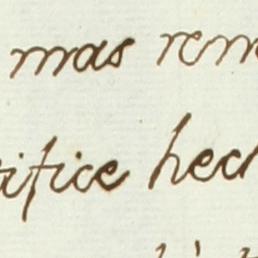 mas rem
rifice hech